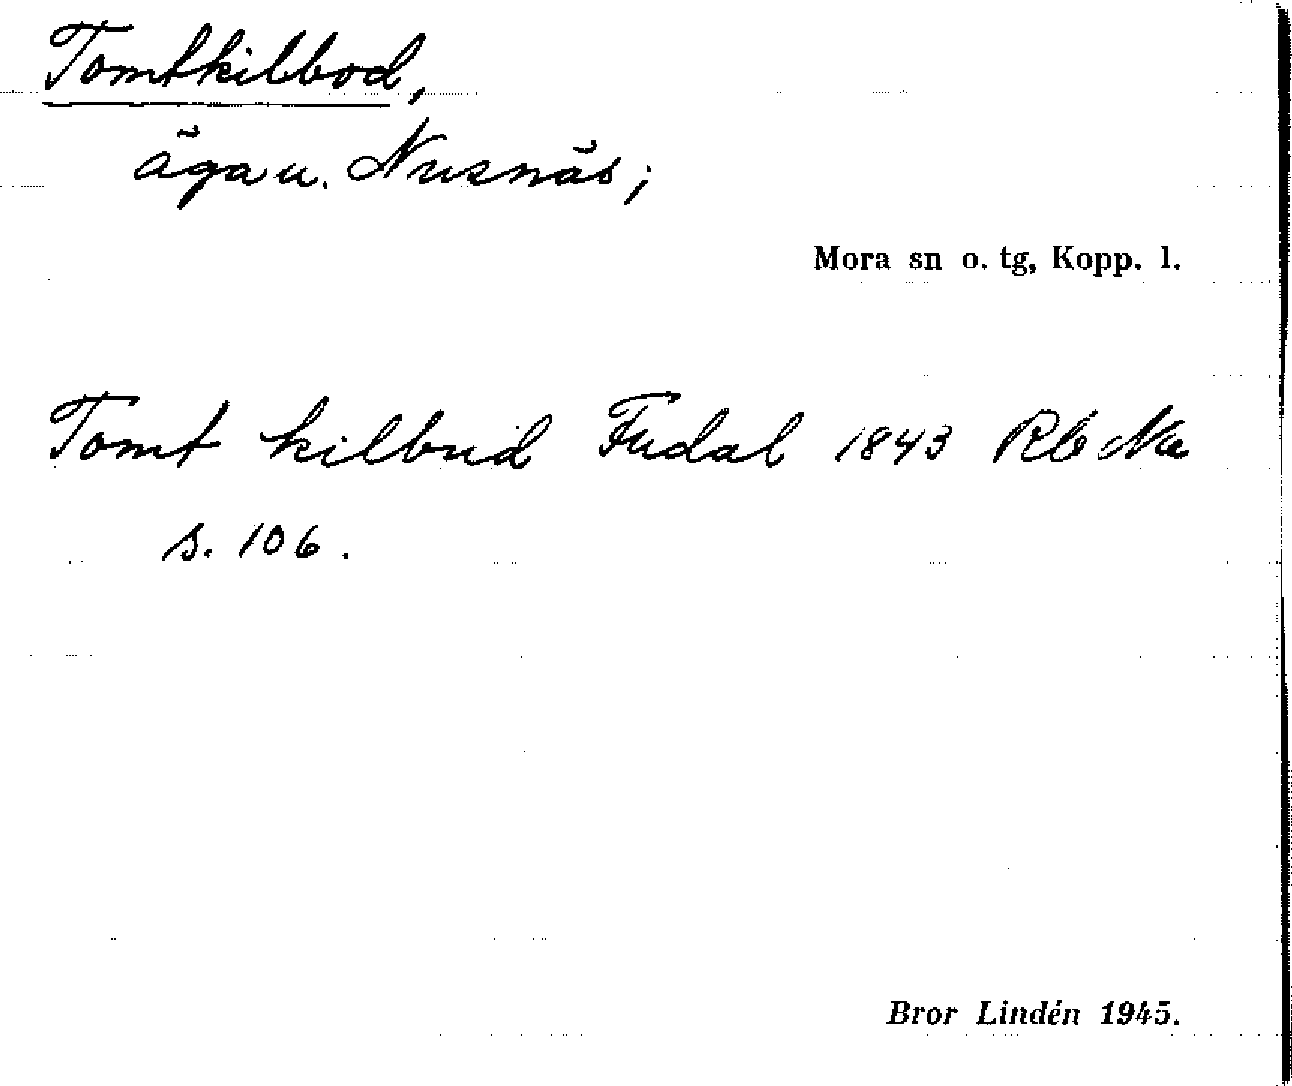 Tomtkilbod,
äga u. Nusnäs;
Mora sn o. tg, Kopp. l.
Tomt kilbud Fudal 1843 Rb Na
s. 106.
Bror Lindén 1945.